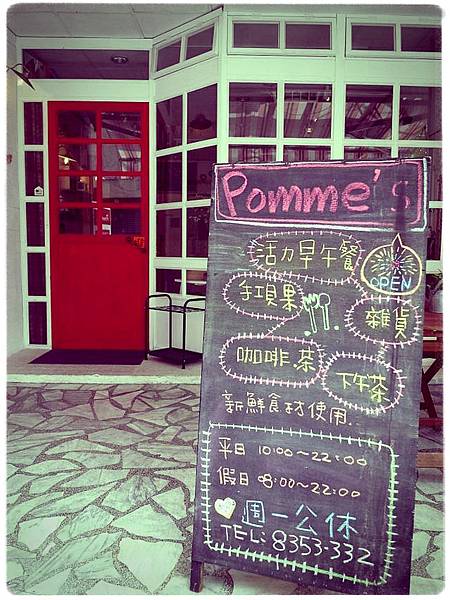 Pomme's
活力早午餐
OPEN
手工貝果
雜貨
咖啡.茶
下午茶
新鮮食材使用.
平日 10:00~22:00
假日 08:00~22:00
週一公休
TEL: 8353-332